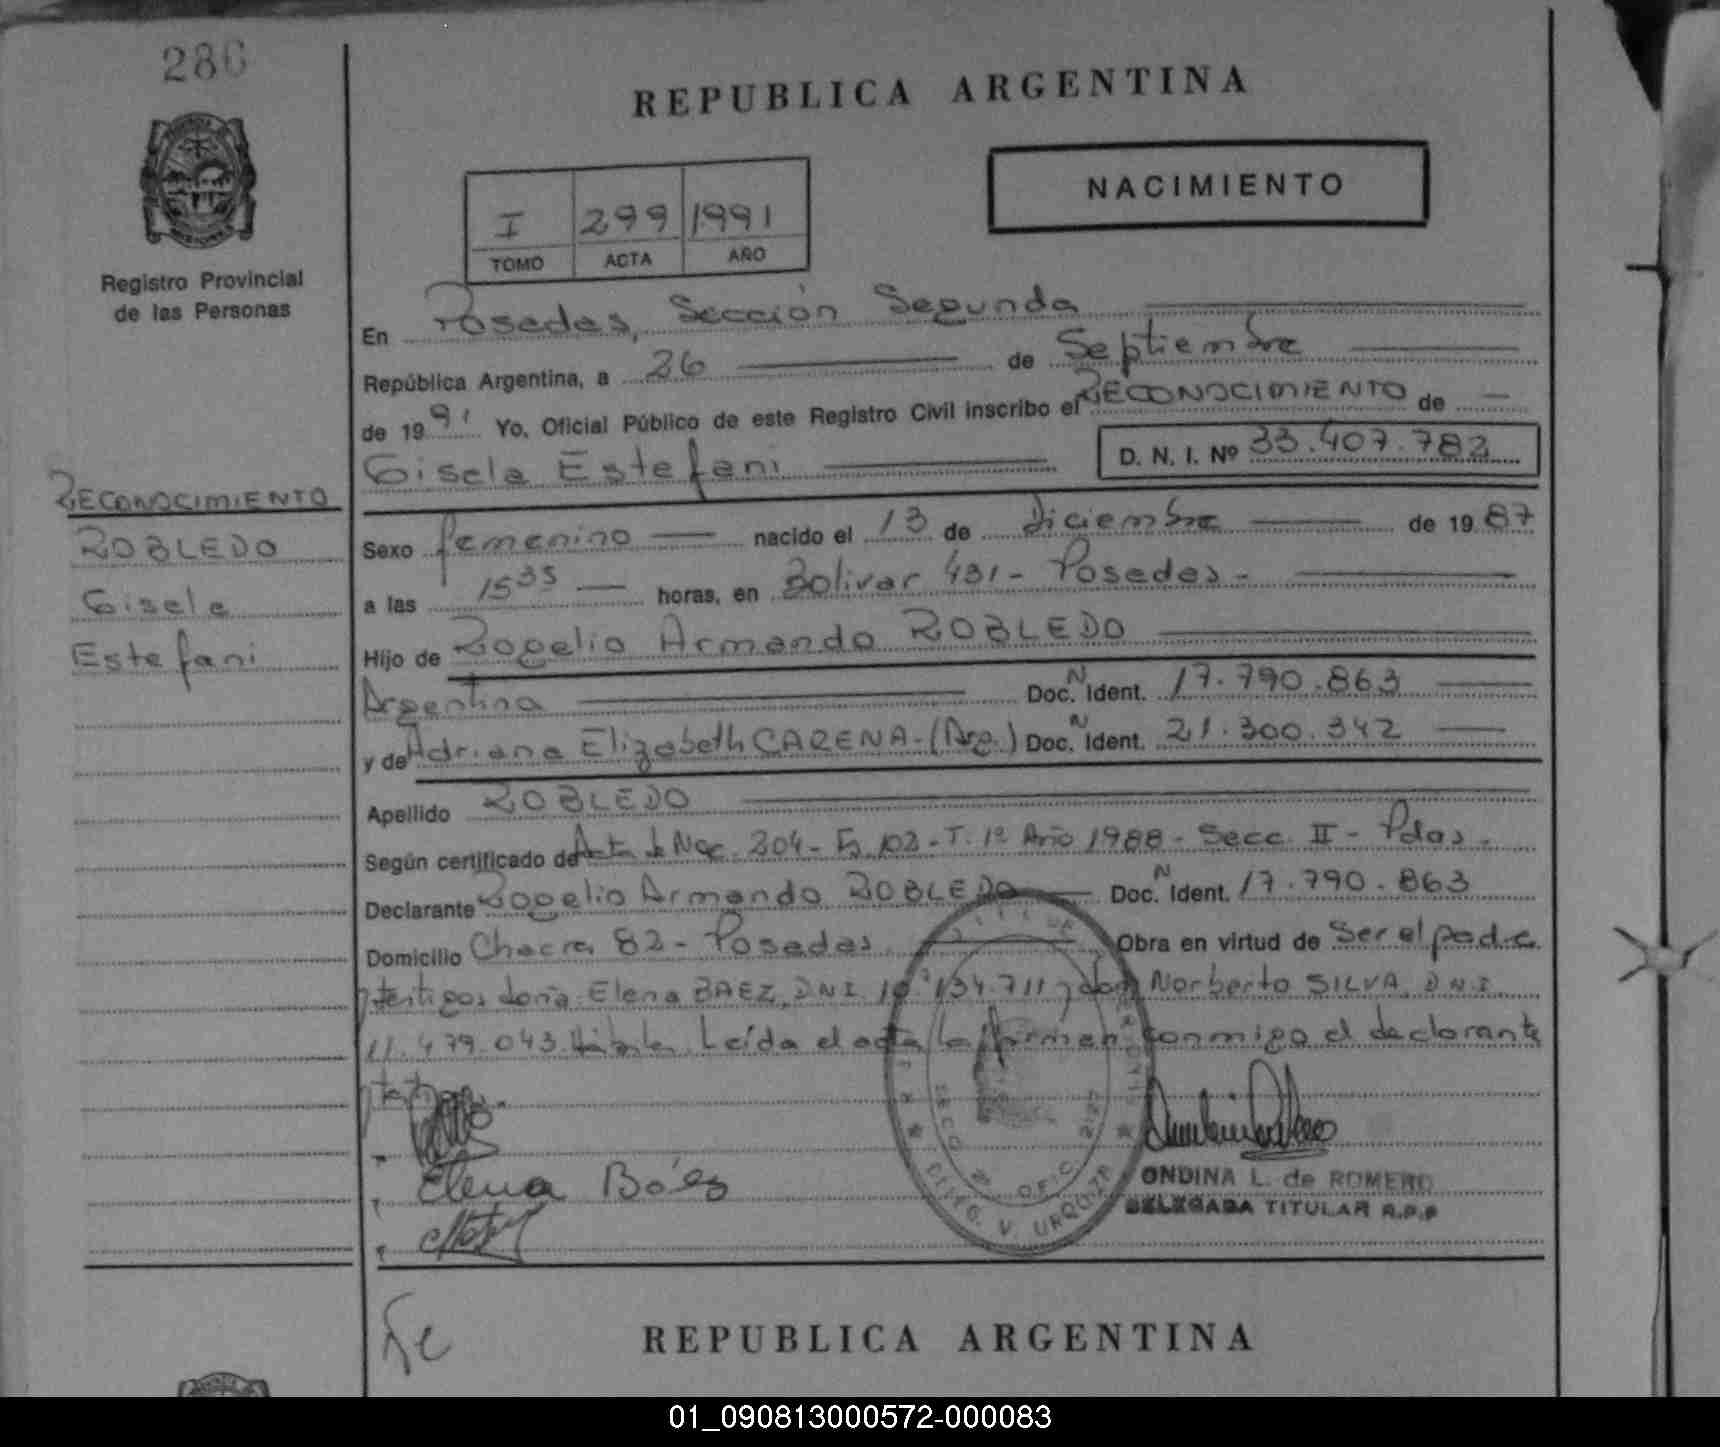 286
REPUBLICA ARGENTINA
NACIMIENTO
I 299 1991
TOMO ACTA AÑO
Registro Provincial
de las Personas
En Posadas, Sección Segunda
República Argentina, a 26 de Septiembre
de 1991 Yo, Oficial Público de este Registro Civil inscribo el RECONOCIMIENTO de —
Gisela Estefani D. N. I. Nº 33.407.782
RECONOCIMIENTO
ROBLEDO
Gisela
Estefani
Sexo femenino nacido el 13 de Diciembre de 1987
a las 15 35 horas, en Bolivar 431 - Posadas -
Hijo de Rogelio Armando ROBLEDO
Argentina Doc. N Ident. 17.790.863
y de Adriana Elizabeth CARENA - (Arg.) Doc. N Ident. 21.300.342
Apellido ROBLEDO
Según certificado de Acta de Nac. 204 - Fº 102 - T. 1º Año 1988 - Secc. II - Pdas.
Declarante Rogelio Armando ROBLEDO Doc. N Ident. 17.790.863
Domicilio Chacra 82 - Posadas Obra en virtud de Ser el padre
y testigos doña: Elena BAEZ, DNI. 10.134.711 y don Norberto SILVA, D.N.I.
11.479.043. Hábiles. Leída el acta la firman conmigo el declarante
Elena Báez
ONDINA L. de ROMERO
DELEGADA TITULAR R.P.P
REPUBLICA ARGENTINA
01_090813000572-000083